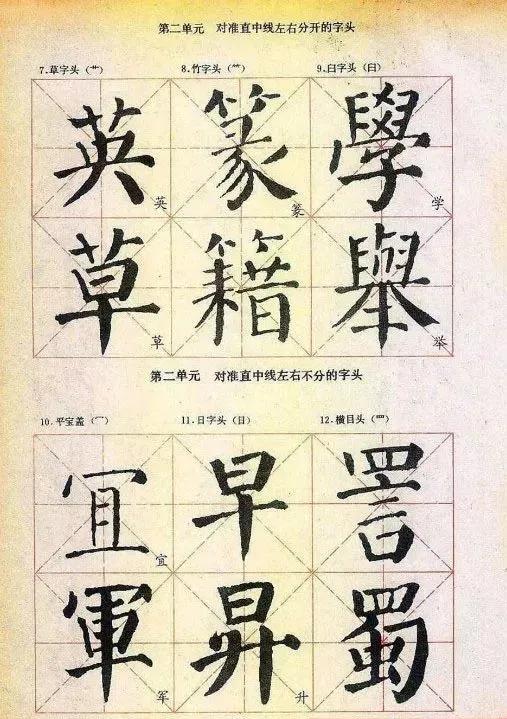 第二单元 对准直中线左右分开的字头
7.草字头（艹） 8.竹字头（⺮） 9.臼字头（臼）
英 英 篆 篆 學 学
草 草 籍 舉 举
第二单元 对准直中线左右不分的字头
10.平宝盖（冖） 11.日字头（日） 12.横目头（罒）
冝 宜 早 詈
軍 军 昇 升 蜀